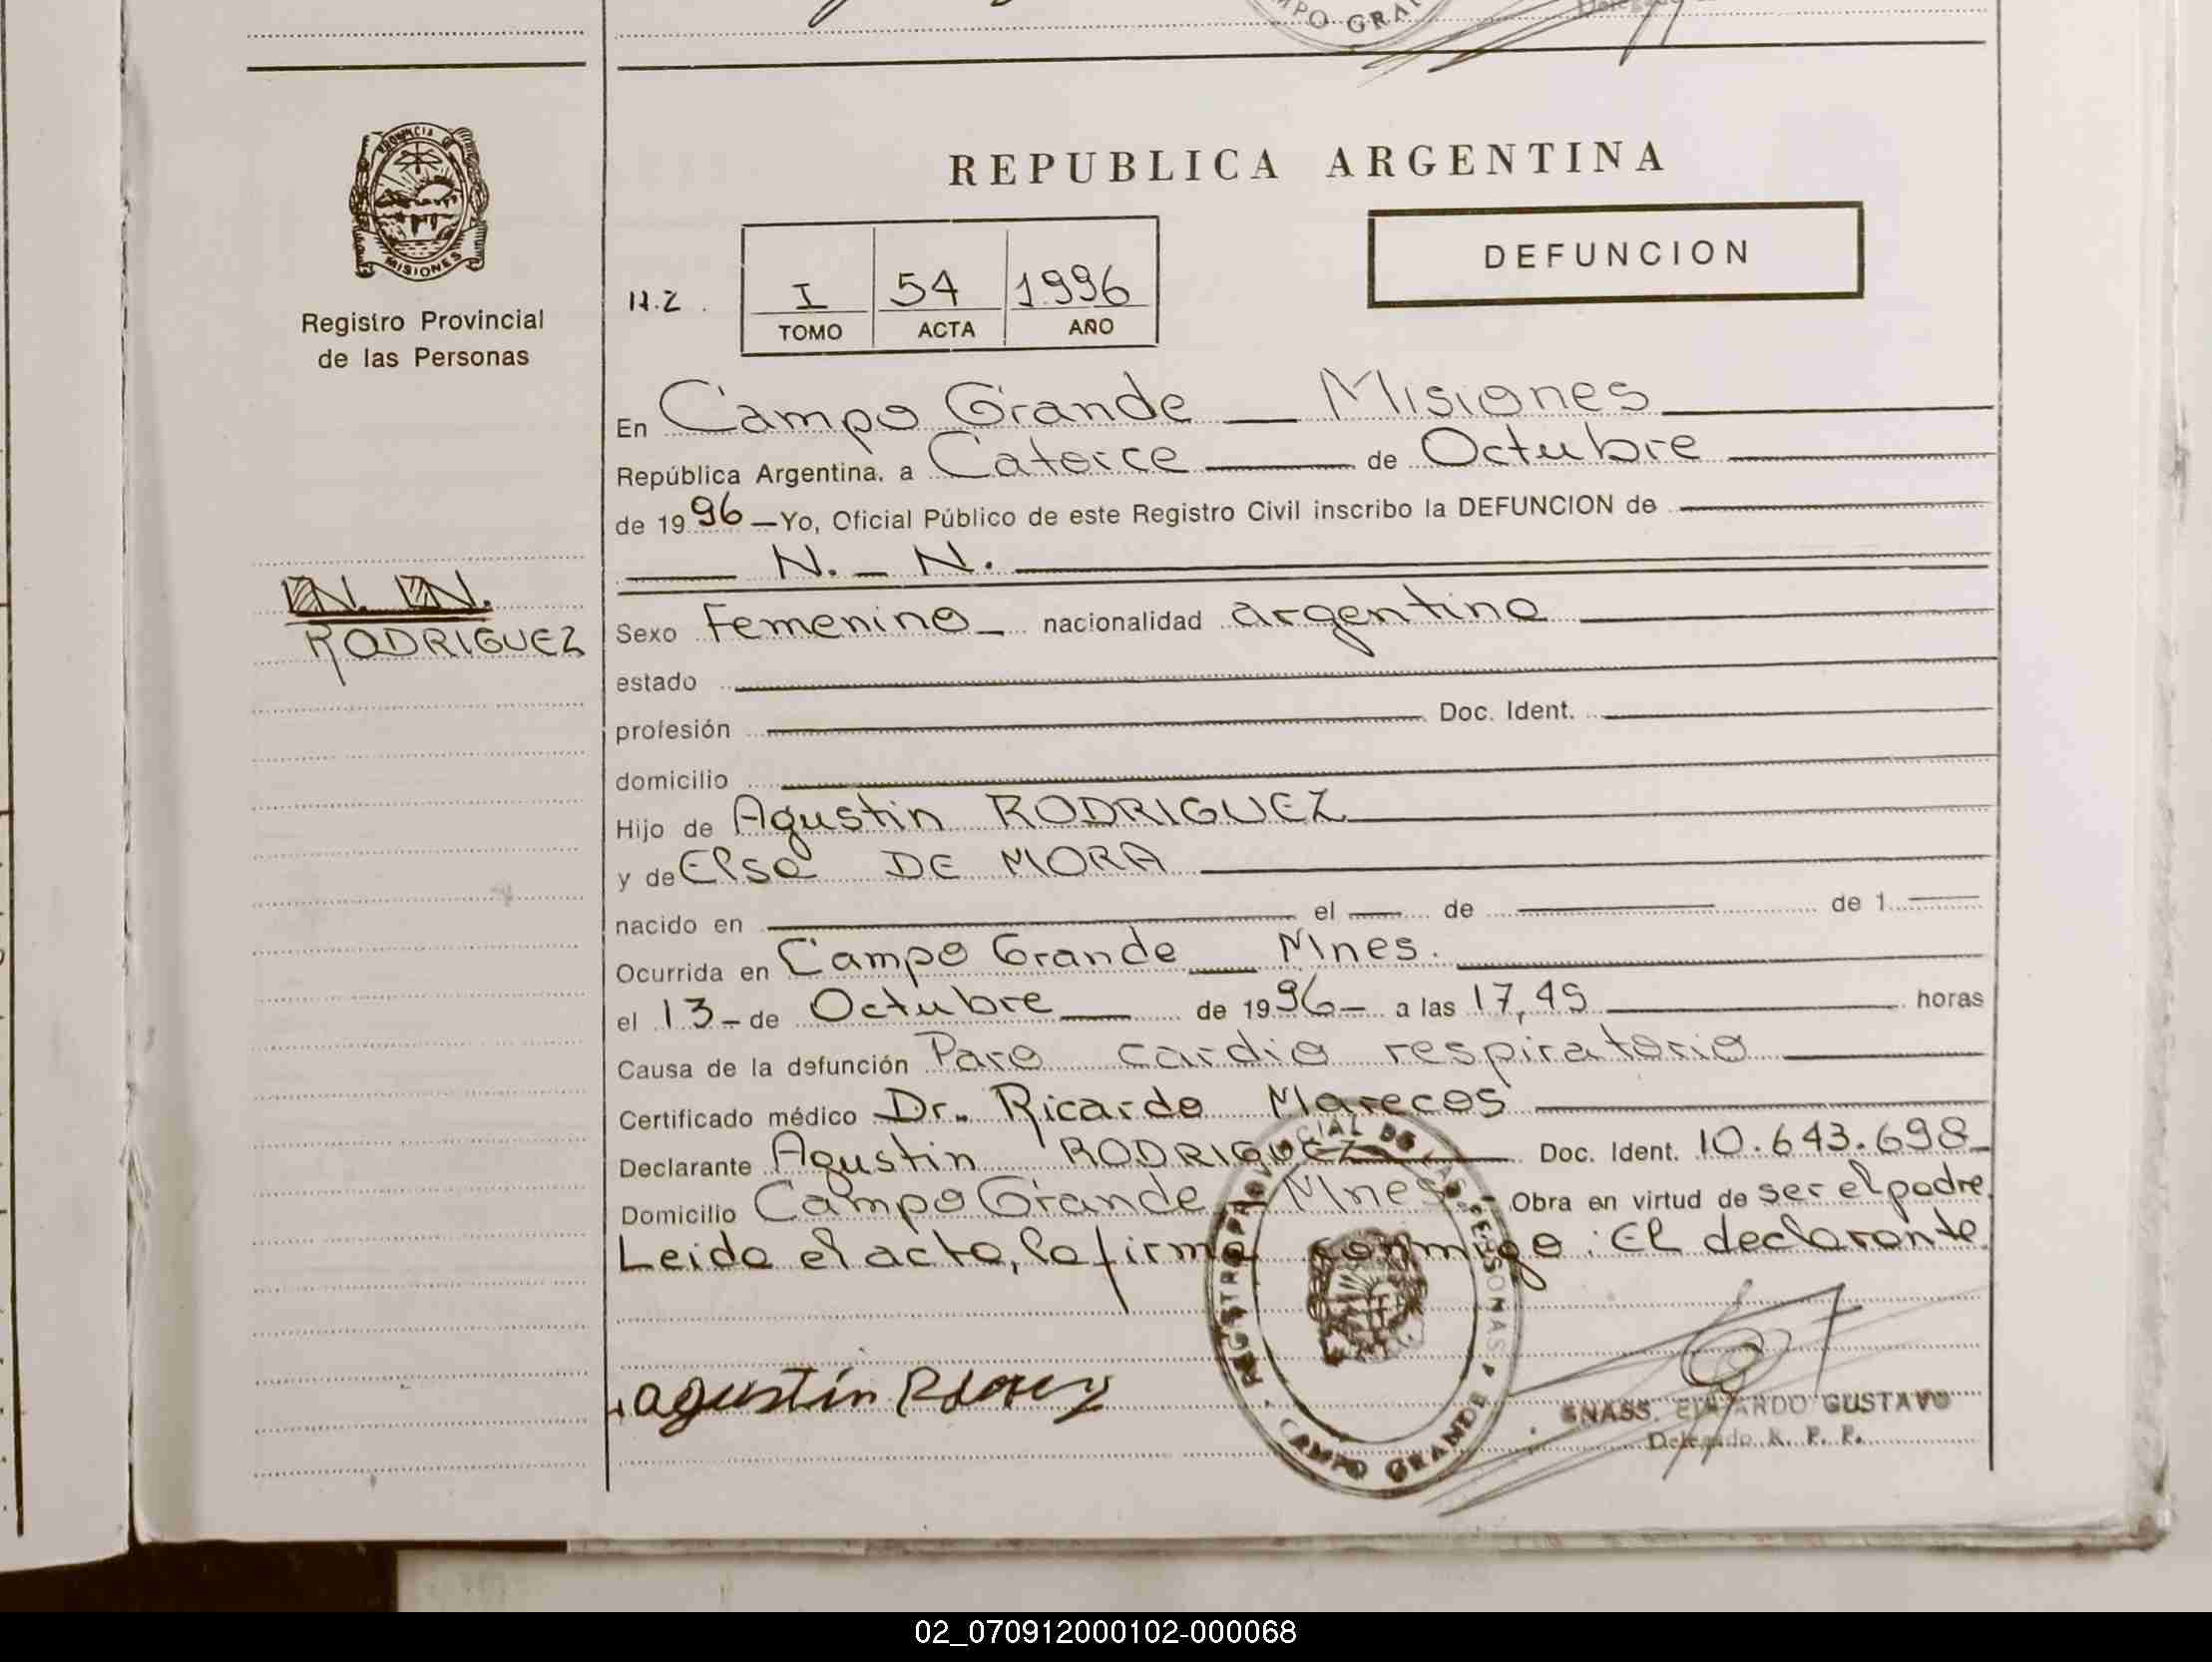 CAMPO GRA
Delega
PROVINCIA DE
MISIONES
Registro Provincial
de las Personas
REPUBLICA ARGENTINA
DEFUNCION
I 54 1996
TOMO ACTA AÑO
En Campo Grande — Misiones
República Argentina, a Catorce de Octubre
de 1996 — Yo, Oficial Público de este Registro Civil inscribo la DEFUNCION de
N. — N.
N. N.
RODRIGUEZ
Sexo Femenino — nacionalidad argentina
estado
profesión Doc. Ident.
domicilio
Hijo de Agustin RODRIGUEZ
y de Elsa DE MORA
nacido en el de de 1
Ocurrida en Campo Grande — Mnes.
el 13 — de Octubre de 1996 — a las 17,45 horas
Causa de la defunción Paro cardio respiratorio
Certificado médico Dr. Ricardo Marecos
Declarante Agustin RODRIGUEZ Doc. Ident. 10.643.698
Domicilio Campo Grande Mnes. Obra en virtud de ser el padre
Leida el acta, la firma conmigo: El declarante.
REGISTRO PROVINCIAL DE LAS PERSONAS
CAMPO GRANDE
agustín
GNASS, EDUARDO GUSTAVO
Delegado R. P. P.
02_070912000102-000068